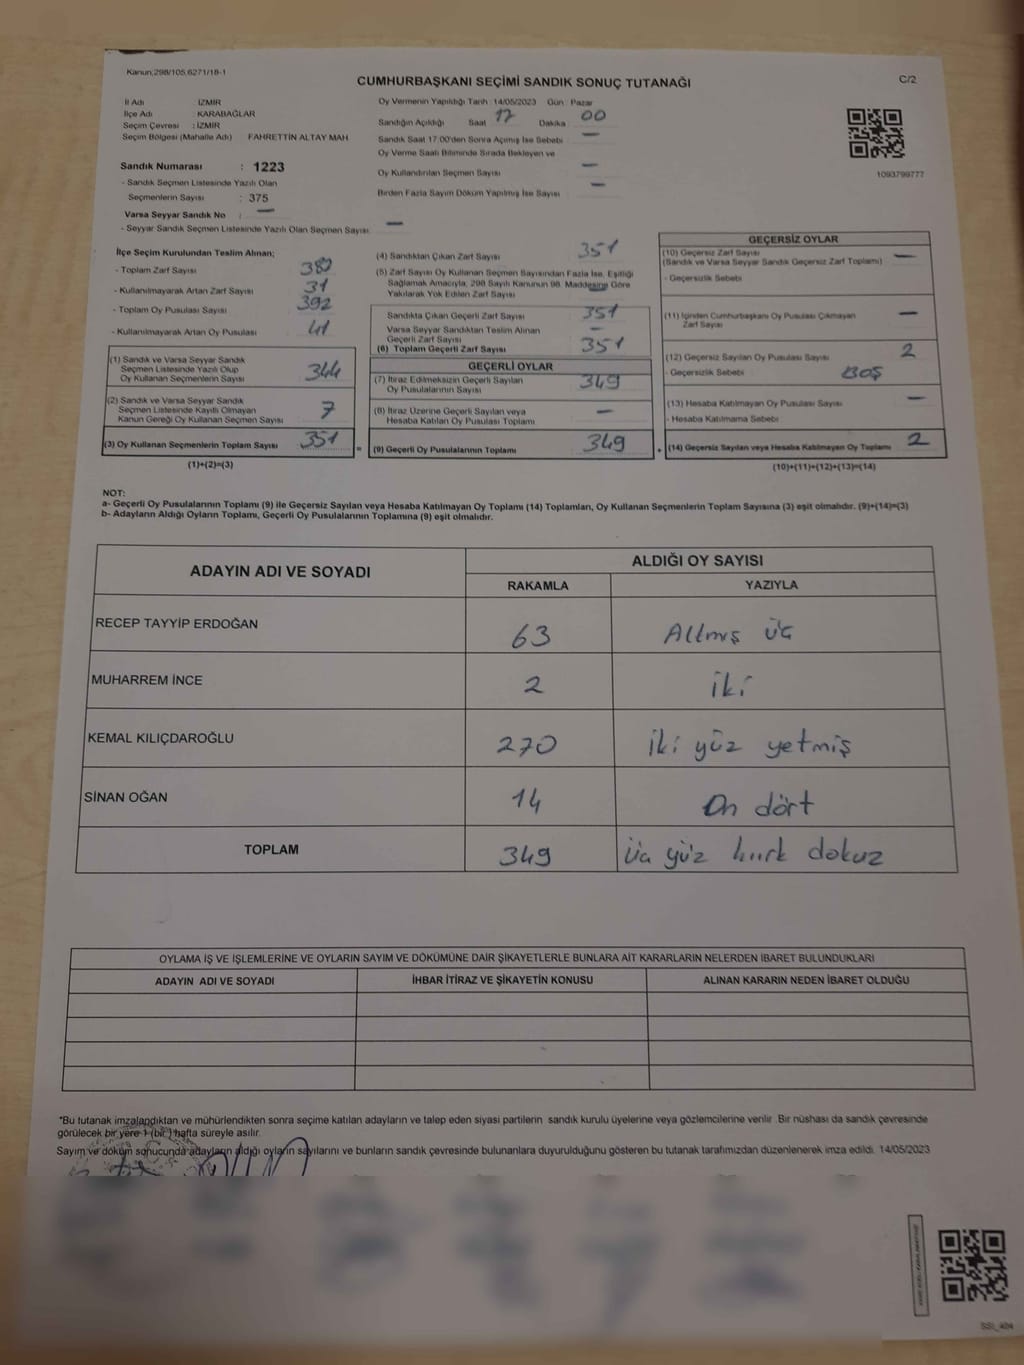 Kanun;298/105,6271/18-1
CUMHURBAŞKANI SEÇİMİ SANDIK SONUÇ TUTANAĞI
C/2
İl Adı İZMİR
İlçe Adı KARABAĞLAR
Seçim Çevresi : İZMİR
Seçim Bölgesi (Mahalle Adı) FAHRETTİN ALTAY MAH
Sandık Numarası : 1223
- Sandık Seçmen Listesinde Yazılı Olan
Seçmenlerin Sayısı : 375
Varsa Seyyar Sandık No : —
- Seyyar Sandık Seçmen Listesinde Yazılı Olan Seçmen Sayısı —
Oy Vermenin Yapıldığı Tarih :14/05/2023 Gün : Pazar
Sandığın Açıldığı Saat 17 Dakika 00
Sandık Saat 17:00'den Sonra Açılmış İse Sebebi —
Oy Verme Saati Bitiminde Sırada Bekleyen ve
Oy Kullandırılan Seçmen Sayısı —
Birden Fazla Sayım Döküm Yapılmış İse Sayısı —
1093799777
İlçe Seçim Kurulundan Teslim Alınan;
- Toplam Zarf Sayısı 382
- Kullanılmayarak Artan Zarf Sayısı 31
- Toplam Oy Pusulası Sayısı 392
- Kullanılmayarak Artan Oy Pusulası 41
(1) Sandık ve Varsa Seyyar Sandık
Seçmen Listesinde Yazılı Olup
Oy Kullanan Seçmenlerin Sayısı 344
(2) Sandık ve Varsa Seyyar Sandık
Seçmen Listesinde Kayıtlı Olmayan
Kanun Gereği Oy Kullanan Seçmen Sayısı 7
(3) Oy Kullanan Seçmenlerin Toplam Sayısı 351
(1)+(2)=(3)
(4) Sandıktan Çıkan Zarf Sayısı 351
(5) Zarf Sayısı Oy Kullanan Seçmen Sayısından Fazla İse, Eşitliği
Sağlamak Amacıyla, 298 Sayılı Kanunun 98. Maddesine Göre
Yakılarak Yok Edilen Zarf Sayısı —
Sandıkta Çıkan Geçerli Zarf Sayısı 351
Varsa Seyyar Sandıktan Teslim Alınan
Geçerli Zarf Sayısı —
(6) Toplam Geçerli Zarf Sayısı 351
GEÇERLİ OYLAR
(7) İtiraz Edilmeksizin Geçerli Sayılan
Oy Pusulalarının Sayısı 349
(8) İtiraz Üzerine Geçerli Sayılan veya
Hesaba Katılan Oy Pusulası Toplamı —
= (9) Geçerli Oy Pusulalarının Toplamı 349
GEÇERSİZ OYLAR
(10) Geçersiz Zarf Sayısı —
(Sandık ve Varsa Seyyar Sandık Geçersiz Zarf Toplamı)
- Geçersizlik Sebebi
(11) İçinden Cumhurbaşkanı Oy Pusulası Çıkmayan
Zarf Sayısı —
(12) Geçersiz Sayılan Oy Pusulası Sayısı 2
- Geçersizlik Sebebi BOŞ
(13) Hesaba Katılmayan Oy Pusulası Sayısı —
- Hesaba Katılmama Sebebi
+ (14) Geçersiz Sayılan veya Hesaba Katılmayan Oy Toplamı 2
(10)+(11)+(12)+(13)=(14)
NOT:
a- Geçerli Oy Pusulalarının Toplamı (9) ile Geçersiz Sayılan veya Hesaba Katılmayan Oy Toplamı (14) Toplamları, Oy Kullanan Seçmenlerin Toplam Sayısına (3) eşit olmalıdır. (9)+(14)=(3)
b- Adayların Aldığı Oyların Toplamı, Geçerli Oy Pusulalarının Toplamına (9) eşit olmalıdır.
ADAYIN ADI VE SOYADI ALDIĞI OY SAYISI
RAKAMLA YAZIYLA
RECEP TAYYİP ERDOĞAN 63 Altmış üç
MUHARREM İNCE 2 iki
KEMAL KILIÇDAROĞLU 270 iki yüz yetmiş
SİNAN OĞAN 14 On dört
TOPLAM 349 üç yüz kırk dokuz
OYLAMA İŞ VE İŞLEMLERİNE VE OYLARIN SAYIM VE DÖKÜMÜNE DAİR ŞİKAYETLERLE BUNLARA AİT KARARLARIN NELERDEN İBARET BULUNDUKLARI
ADAYIN ADI VE SOYADI İHBAR İTİRAZ VE ŞİKAYETİN KONUSU ALINAN KARARIN NEDEN İBARET OLDUĞU
*Bu tutanak imzalandıktan ve mühürlendikten sonra seçime katılan adayların ve talep eden siyasi partilerin sandık kurulu üyelerine veya gözlemcilerine verilir. Bir nüshası da sandık çevresinde
görülecek bir yere 1 (bir) hafta süreyle asılır.
Sayım ve döküm sonucunda adayların aldığı oyların sayılarını ve bunların sandık çevresinde bulunanlara duyurulduğunu gösteren bu tutanak tarafımızdan düzenlenerek imza edildi. 14/05/2023